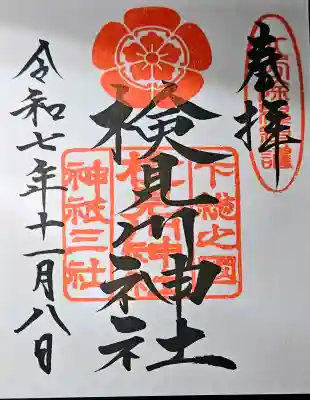 奉拝
検見川神社
下総之國
神社三社
令和七年十一月八日